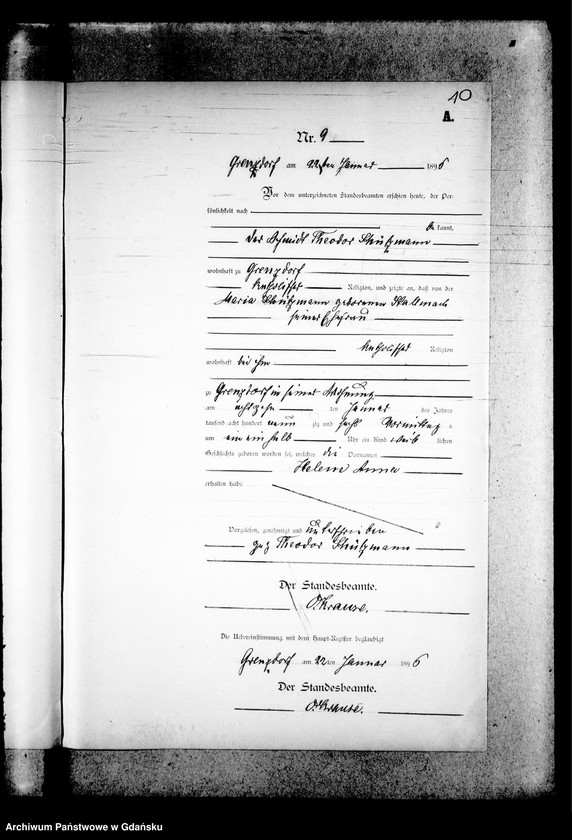 10
A.
Nr. 9
Grenzdorf am 22ten Januar 1896
Vor dem unterzeichneten Standesbeamten erschien heute, der Per-
sönlichkeit nach
be kannt,
der Schmidt Theodor Schützmann
wohnhaft zu Grenzdorf
katholischer Religion, und zeigte an, daß von der
Maria Schützmann geborenen
seiner Ehefrau
katholischer Religion
wohnhaft bei ihm
zu Grenzdorf in seiner Wohnung
am achtzehn ten Januar des Jahres
tausend acht hundert neun zig und sechs Vormittag s
um ein halb Uhr ein Kind weib lichen
Geschlechts geboren worden sei, welches die Vornamen
Helene Anna
erhalten habe.
Vorgelesen, genehmigt und unterschrieben
gez Theodor Schützmann
Der Standesbeamte.
O Krause.
Die Uebereinstimmung mit dem Haupt-Register beglaubigt
Grenzdorf am 22ten Januar 1896
Der Standesbeamte.
O Krause.
Archiwum Państwowe w Gdańsku